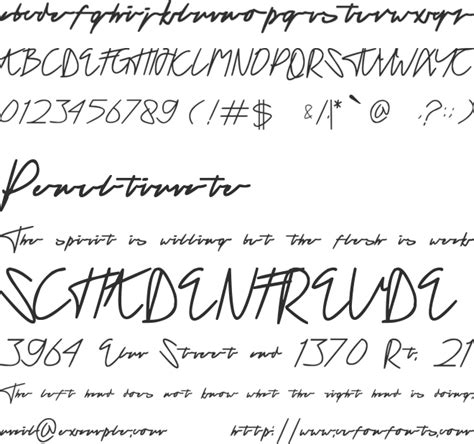 abcdefghijklmnopqrstuvwxyz
ABCDEFGHIJKLMNOPQRSTUVWXYZ
0123456789 (!#$ &/|*` @ ?:;
Penultimate
The spirit is willing but the flesh is weak
SCHADENFREUDE
3964 Elm Street and 1370 Rt. 21
The left hand does not know what the right hand is doing.
email@example.com